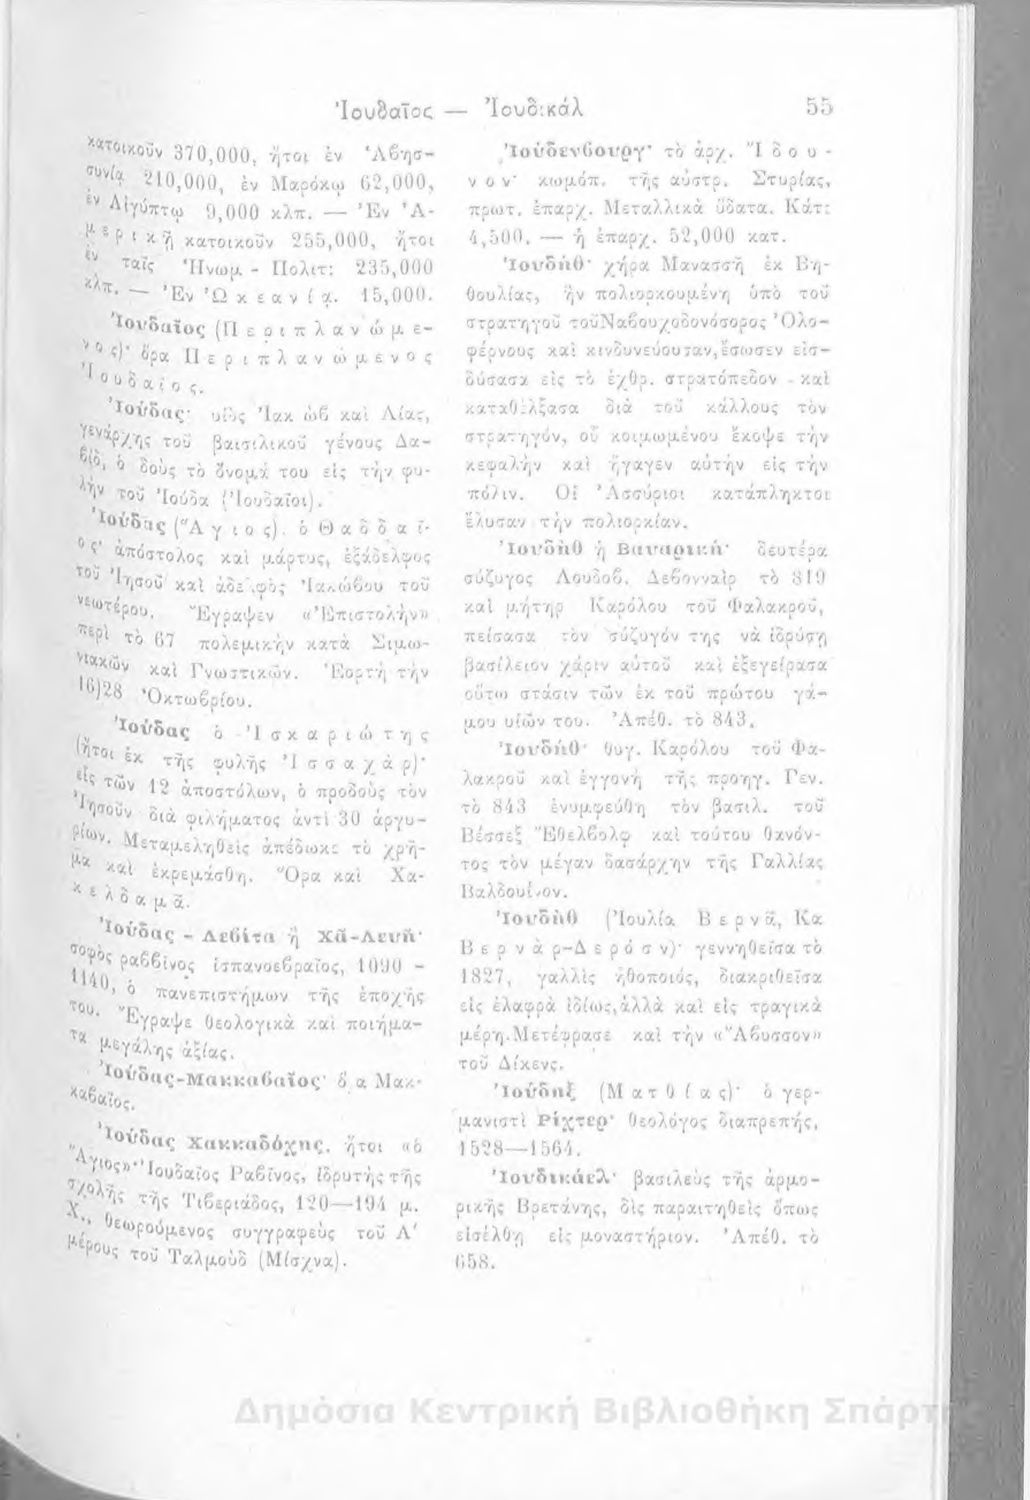 Ἰουδαῖος — Ἰουδικάλ 55
κατοικοῦν 370,000, ἤτοι ἐν Ἀβησ-
συνίᾳ 210,000, ἐν Μαρόκῳ 62,000,
ἐν Αἰγύπτῳ 9,000 κλπ. — Ἐν Ἀ-
μερικῇ κατοικοῦν 255,000, ἤτοι
ἐν ταῖς Ἡνωμ - Πολιτ: 235,000
κλπ. — Ἐν Ὠκεανίᾳ. 15,000.
Ἰουδαῖος (Περιπλανώμε-
νος)· ὅρα Περιπλανώμενος
Ἰουδαῖος.
Ἰούδας· υἱὸς Ἰακώβ καὶ Λίας,
γενάρχης τοῦ βασιλικοῦ γένους Δα-
βίδ, ὁ δοὺς τὸ ὄνομά του εἰς τὴν φυ-
λὴν τοῦ Ἰούδα (Ἰουδαῖοι).
Ἰούδας (Ἅγιος). ὁ Θαδδαῖ-
ος· ἀπόστολος καὶ μάρτυς, ἐξάδελφος
τοῦ Ἰησοῦ καὶ ἀδελφὸς Ἰακώβου τοῦ
νεωτέρου. Ἔγραψεν «Ἐπιστολὴν»
περὶ τὸ 67 πολεμικὴν κατὰ Σιμω-
νιακῶν καὶ Γνωστικῶν. Ἑορτὴ τὴν
16)28 Ὀκτωβρίου.
Ἰούδας ὁ Ἰσκαριώτης
(ἤτοι ἐκ τῆς φυλῆς Ἰσσαχάρ)·
εἷς τῶν 12 ἀποστόλων, ὁ προδοὺς τὸν
Ἰησοῦν διὰ φιλήματος ἀντὶ 30 ἀργυ-
ρίων. Μεταμεληθεὶς ἀπέδωκε τὸ χρῆ-
μα καὶ ἐκρεμάσθη. Ὅρα καὶ Χα-
κελδαμᾶ.
Ἰούδας - Λεβίτα ἢ Χᾶ-Λευῆ·
σοφὸς ραββῖνος ἱσπανοεβραῖος, 1090 -
1140, ὁ πανεπιστήμων τῆς ἐποχῆς
του. Ἔγραψε θεολογικὰ καὶ ποιήμα-
τα μεγάλης ἀξίας.
Ἰούδας-Μακκαβαῖος· ὅ α Μακ-
καβαῖος.
Ἰούδας Χακκαδόχης, ἤτοι «ὁ
Ἅγιος»· Ἰουδαῖος Ραβῖνος, ἱδρυτὴς τῆς
σχολῆς τῆς Τιβεριάδος, 120—194 μ.
Χ., θεωρούμενος συγγραφεὺς τοῦ Α΄
μέρους τοῦ Ταλμοὺδ (Μίσχνα).
Ἰούδενβουργ· τὸ ἀρχ. Ἴδου-
νον· κωμόπ. τῆς αὐστρ. Στυρίας,
πρωτ. ἐπαρχ. Μεταλλικὰ ὕδατα. Κάτ:
4,500. — ἡ ἐπαρχ. 52,000 κατ.
Ἰουδήθ· χήρα Μανασσῆ ἐκ Βη-
θουλίας, ἣν πολιορκουμένη ὑπὸ τοῦ
στρατηγοῦ τοῦΝαβουχοδονόσορος Ὀλο-
φέρνους καὶ κινδυνεύουσαν,ἔσωσεν εἰσ-
δύσασα εἰς τὸ ἐχθρ. στρατόπεδον - καὶ
καταθέλξασα διὰ τοῦ κάλλους τὸν
στρατηγόν, οὗ κοιμωμένου ἔκοψε τὴν
κεφαλὴν καὶ ἤγαγεν αὐτὴν εἰς τὴν
πόλιν. Οἱ Ἀσσύριοι κατάπληκτοι
ἔλυσαν τὴν πολιορκίαν.
Ἰουδὴθ ἡ Βαυαρικὴ· δευτέρα
σύζυγος Λουδοβ. Δεβονναὶρ τὸ 819
καὶ μήτηρ Καρόλου τοῦ Φαλακροῦ,
πείσασα τὸν σύζυγόν της νὰ ἱδρύσῃ
βασίλειον χάριν αὐτοῦ καὶ ἐξεγείρασα
οὕτω στάσιν τῶν ἐκ τοῦ πρώτου γά-
μου υἱῶν του. Ἀπέθ. τὸ 843.
Ἰουδὴθ· θυγ. Καρόλου τοῦ Φα-
λακροῦ καὶ ἐγγονὴ τῆς προηγ. Γεν.
τὸ 843 ἐνυμφεύθη τὸν βασιλ. τοῦ
Βέσσεξ Ἔθελβολφ καὶ τούτου θανόν-
τος τὸν μέγαν δασάρχην τῆς Γαλλίας
Βαλδουῖνον.
Ἰουδὴθ (Ἰουλία Βερνᾶ, Κα
Βερνὰρ-Δερόσν)· γεννηθεῖσα τὸ
1827, γαλλὶς ἠθοποιός, διακριθεῖσα
εἰς ἐλαφρὰ ἰδίως,ἀλλὰ καὶ εἰς τραγικὰ
μέρη.Μετέφρασε καὶ τὴν «Ἄβυσσον»
τοῦ Δίκενς.
Ἰούδηξ (Ματθίας)· ὁ γερ-
μανιστὶ Ρίχτερ· θεολόγος διαπρεπής,
1528—1564.
Ἰουδικάελ· βασιλεὺς τῆς ἀρμο-
ρικῆς Βρετάνης, δὶς παραιτηθεὶς ὅπως
εἰσέλθῃ εἰς μοναστήριον. Ἀπέθ. τὸ
658.
Δημόσια Κεντρική Βιβλιοθήκη Σπάρτης